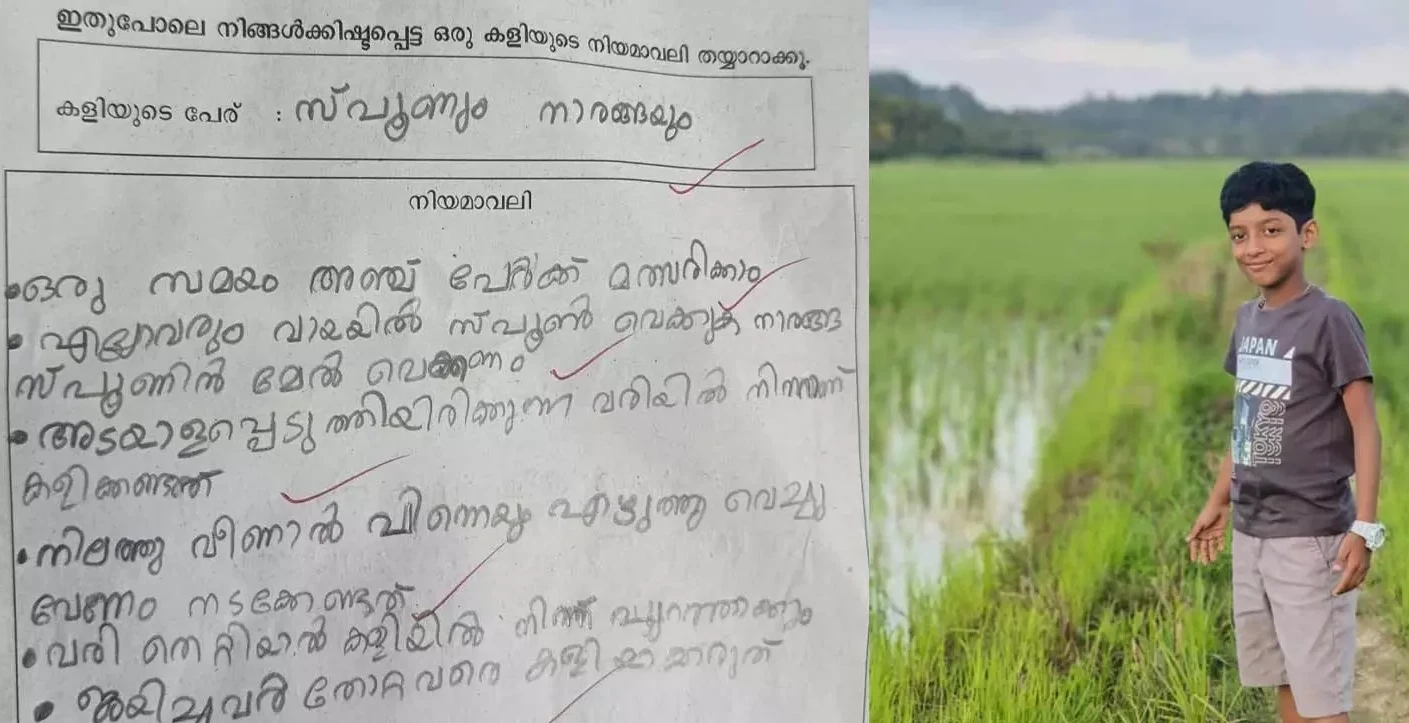 ഇതുപോലെ നിങ്ങൾക്കിഷ്ടപ്പെട്ട ഒരു കളിയുടെ നിയമാവലി തയ്യാറാക്കൂ.
കളിയുടെ പേര് : സ്പൂണും നാരങ്ങയും
നിയമാവലി
•ഒരു സമയം അഞ്ച് പേർക്ക് മത്സരിക്കാം
• എല്ലാവരും വായയിൽ സ്പൂൺ വെക്കുക നാരങ്ങ
സ്പൂണിൻ മേൽ വെക്കണം
• അടയാളപ്പെടുത്തിയിരിക്കുന്ന വരിയിൽ നിന്നാണ്
കളിക്കണ്ടത്
•നിലത്തു വീണാൽ പിന്നെയും എടുത്തു വെച്ചു
വേണം നടക്കേണ്ടത്
• വരി തെറ്റിയാൽ കളിയിൽ നിന്ന് പുറത്താക്കും
• ജയിച്ചവർ തോറ്റവരെ കളിയാക്കരുത്
JAPAN